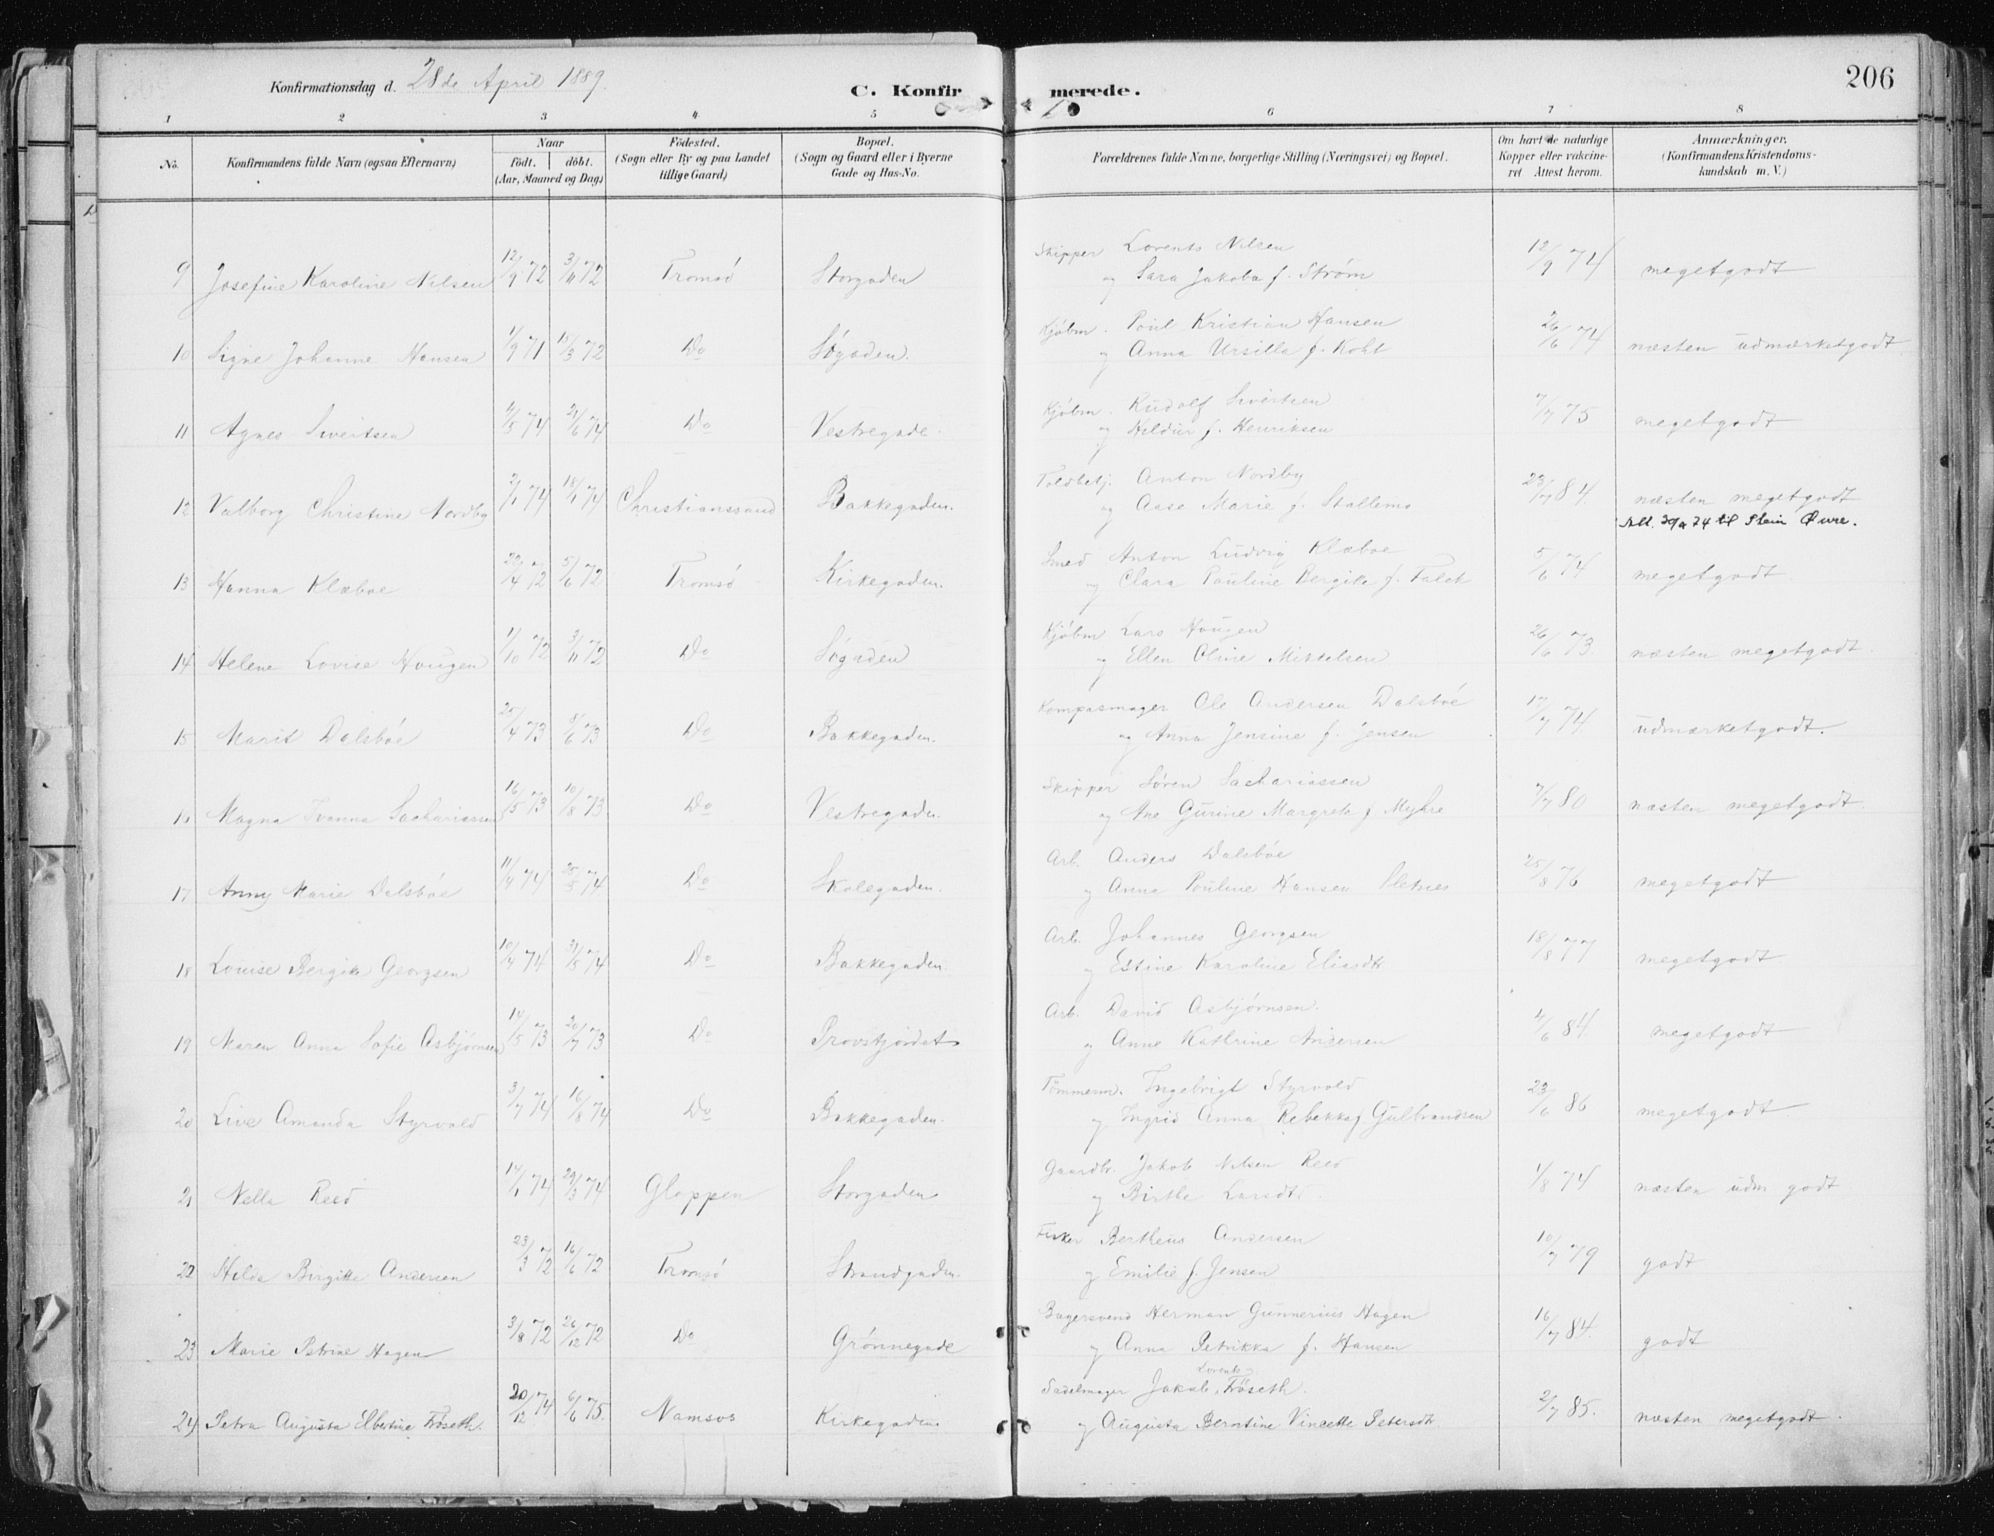 206
Konfirmationsdag d. 28de April 1889.
C. Konfirmerede.
1 2 3 4 5 6 7 8
No. Konfirmandens fulde Navn (ogsaa Efternavn) Naar født. døbt. (Aar, Maaned og Dag) Fødested. (Sogn eller By og paa Landet tillige Gaard) Bopæl. (Sogn og Gaard eller i Byerne Gade og Hus-No. Forældrenes fulde Navne, borgerlige Stilling (Næringsvei) og Bopæl. Om havt de naturlige Kopper eller vakcineret. Attest herom. Anmærkninger. (Konfirmandens Kristendomskundskab m. V.)
9 Josefine Karoline Nilsen 12/9 72 3/11 72 Tromsö Storgaden Skipper Lorents Nilsen 12/9 74 megetgodt
og Sara Jakoba f. Strøm
10 Signe Johanne Hansen 1/9 71 /3 72 Do Søgaden. Kjøbm. Poul Kristian Hansen 26/6 74 næsten udmærketgodt
og Anna Ursilla f. Koht
11 Agnes Sivertsen 4/5 74 21/6 74 Do Vestregade. Kjøbm. Rudolf Sivertsen 7/7 75 megetgodt
og Hildur f. Henriksen
12 Valborg Christine Nordby 2/1 74 18/1 74 Christianssand Bakkegaden. Toldbetj. Anton Nordby 23/7 84 næsten megetgodt
og Aase Marie f. Stallemo
til Stein Øure.
13 Hanna Klæboe 22/4 72 5/6 72 Tromsö Kirkegaden. Smed Anton Ludvig Klæboe 5/6 74 megetgodt
og Clara Pauline Bergite f. Falck
14 Helene Lovise Hougen 1/10 72 3/11 72 Do Søgaden Kjøbm Lars Hougen 26/6 73. næsten megetgodt.
og Ellen Oline Mikkelsen
15 Marit Dalsbøe 25/4 73 8/6 73 Do Bakkegaden. Kompasmager Ole Andersen Dalsbøe 17/7 74 udmærketgodt.
og Anna Jensine f. Jensen
16 Magna Ivanna Sachariassen 16/5 73 10/8 73 Do Vestregaden. Skipper Søren Sachariassen 7/7 80 næsten megetgodt.
og Ane Gurine Margrete f Myhre
17 Anny Marie Dalsbøe 11/4 74 25/5 74 Do Skolegaden. Arb. Anders Dalsbøe 25/8 76 megetgodt
og Anna Pouline Hansen Sletnes
18 Louise Bergite Georgsen 10/4 74 31/5 74 Do Bakkegaden. Arb. Johannes Georgsen 18/8 77 megetgodt.
og Estine Karoline Eliasdtr
19 Maren Anna Sofie Asbjørnsen 14/5 73 20/7 73 Do Provstjordet Arb. David Asbjørnsen. 4/6 84 megetgodt
og Anne Kathrine Andersen
20 Live Amanda Styrvold 3/7 74 16/8 74 Do Bakkegaden. Tømmerm. Ingebrigt Styrvold 23/6 86 megetgodt
og Ingrid Anna Rebekka f. Gulbrandsen
21 Nella Reed 14/1 74 29/3 74 Gloppen Storgaden Gaardbr. Jakob Nilsen Reed 1/8 74 næsten udm godt.
og Birthe Larsdtr.
22 Hilda Birgitte Andersen 23/3 72 16/6 72 Tromsö Strandgaden. Fisker Bertheus Andersen 10/7 79 godt
og Emilie f. Jensen
23 Marie Petrine Hagen 3/8 72 26/12 72 Do Grønnegade Bagersvend Herman Gunnerius Hagen 16/7 84. godt
og Anna Petrikka f. Hansen
24 Petra Augusta Elbertine Frøseth. 20/12 74 6/6 75. Namsos Kirkegaden Sadelmager Jakob Lorents Frøseth. 2/7 85. næsten megetgodt.
og Augusta Berntine Vincette Petersdtr.